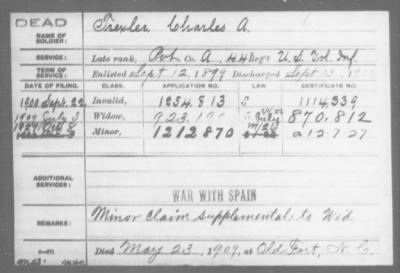 DEAD
NAME OF SOLDIER: Trexler, Charles A.
SERVICE: Late rank, Pvt Co. A, 44 Reg't U.S. Vol. Inf.
TERM OF SERVICE: Enlisted Sept. 12, 1899 Discharged Sept.
DATE OF FILING. CLASS. APPLICATION NO. LAW. CERTIFICATE NO.
1900 Sept. 22 Invalid, 1254,813 1114,339
1909 July 3 Widow, 923, 870,812
Minor, 1212870 a 12-7-27
ADDITIONAL SERVICES:
WAR WITH SPAIN
REMARKS: Minor claim supplemental to Wid
Died May 23, 1909, at Old Fort, N.C.